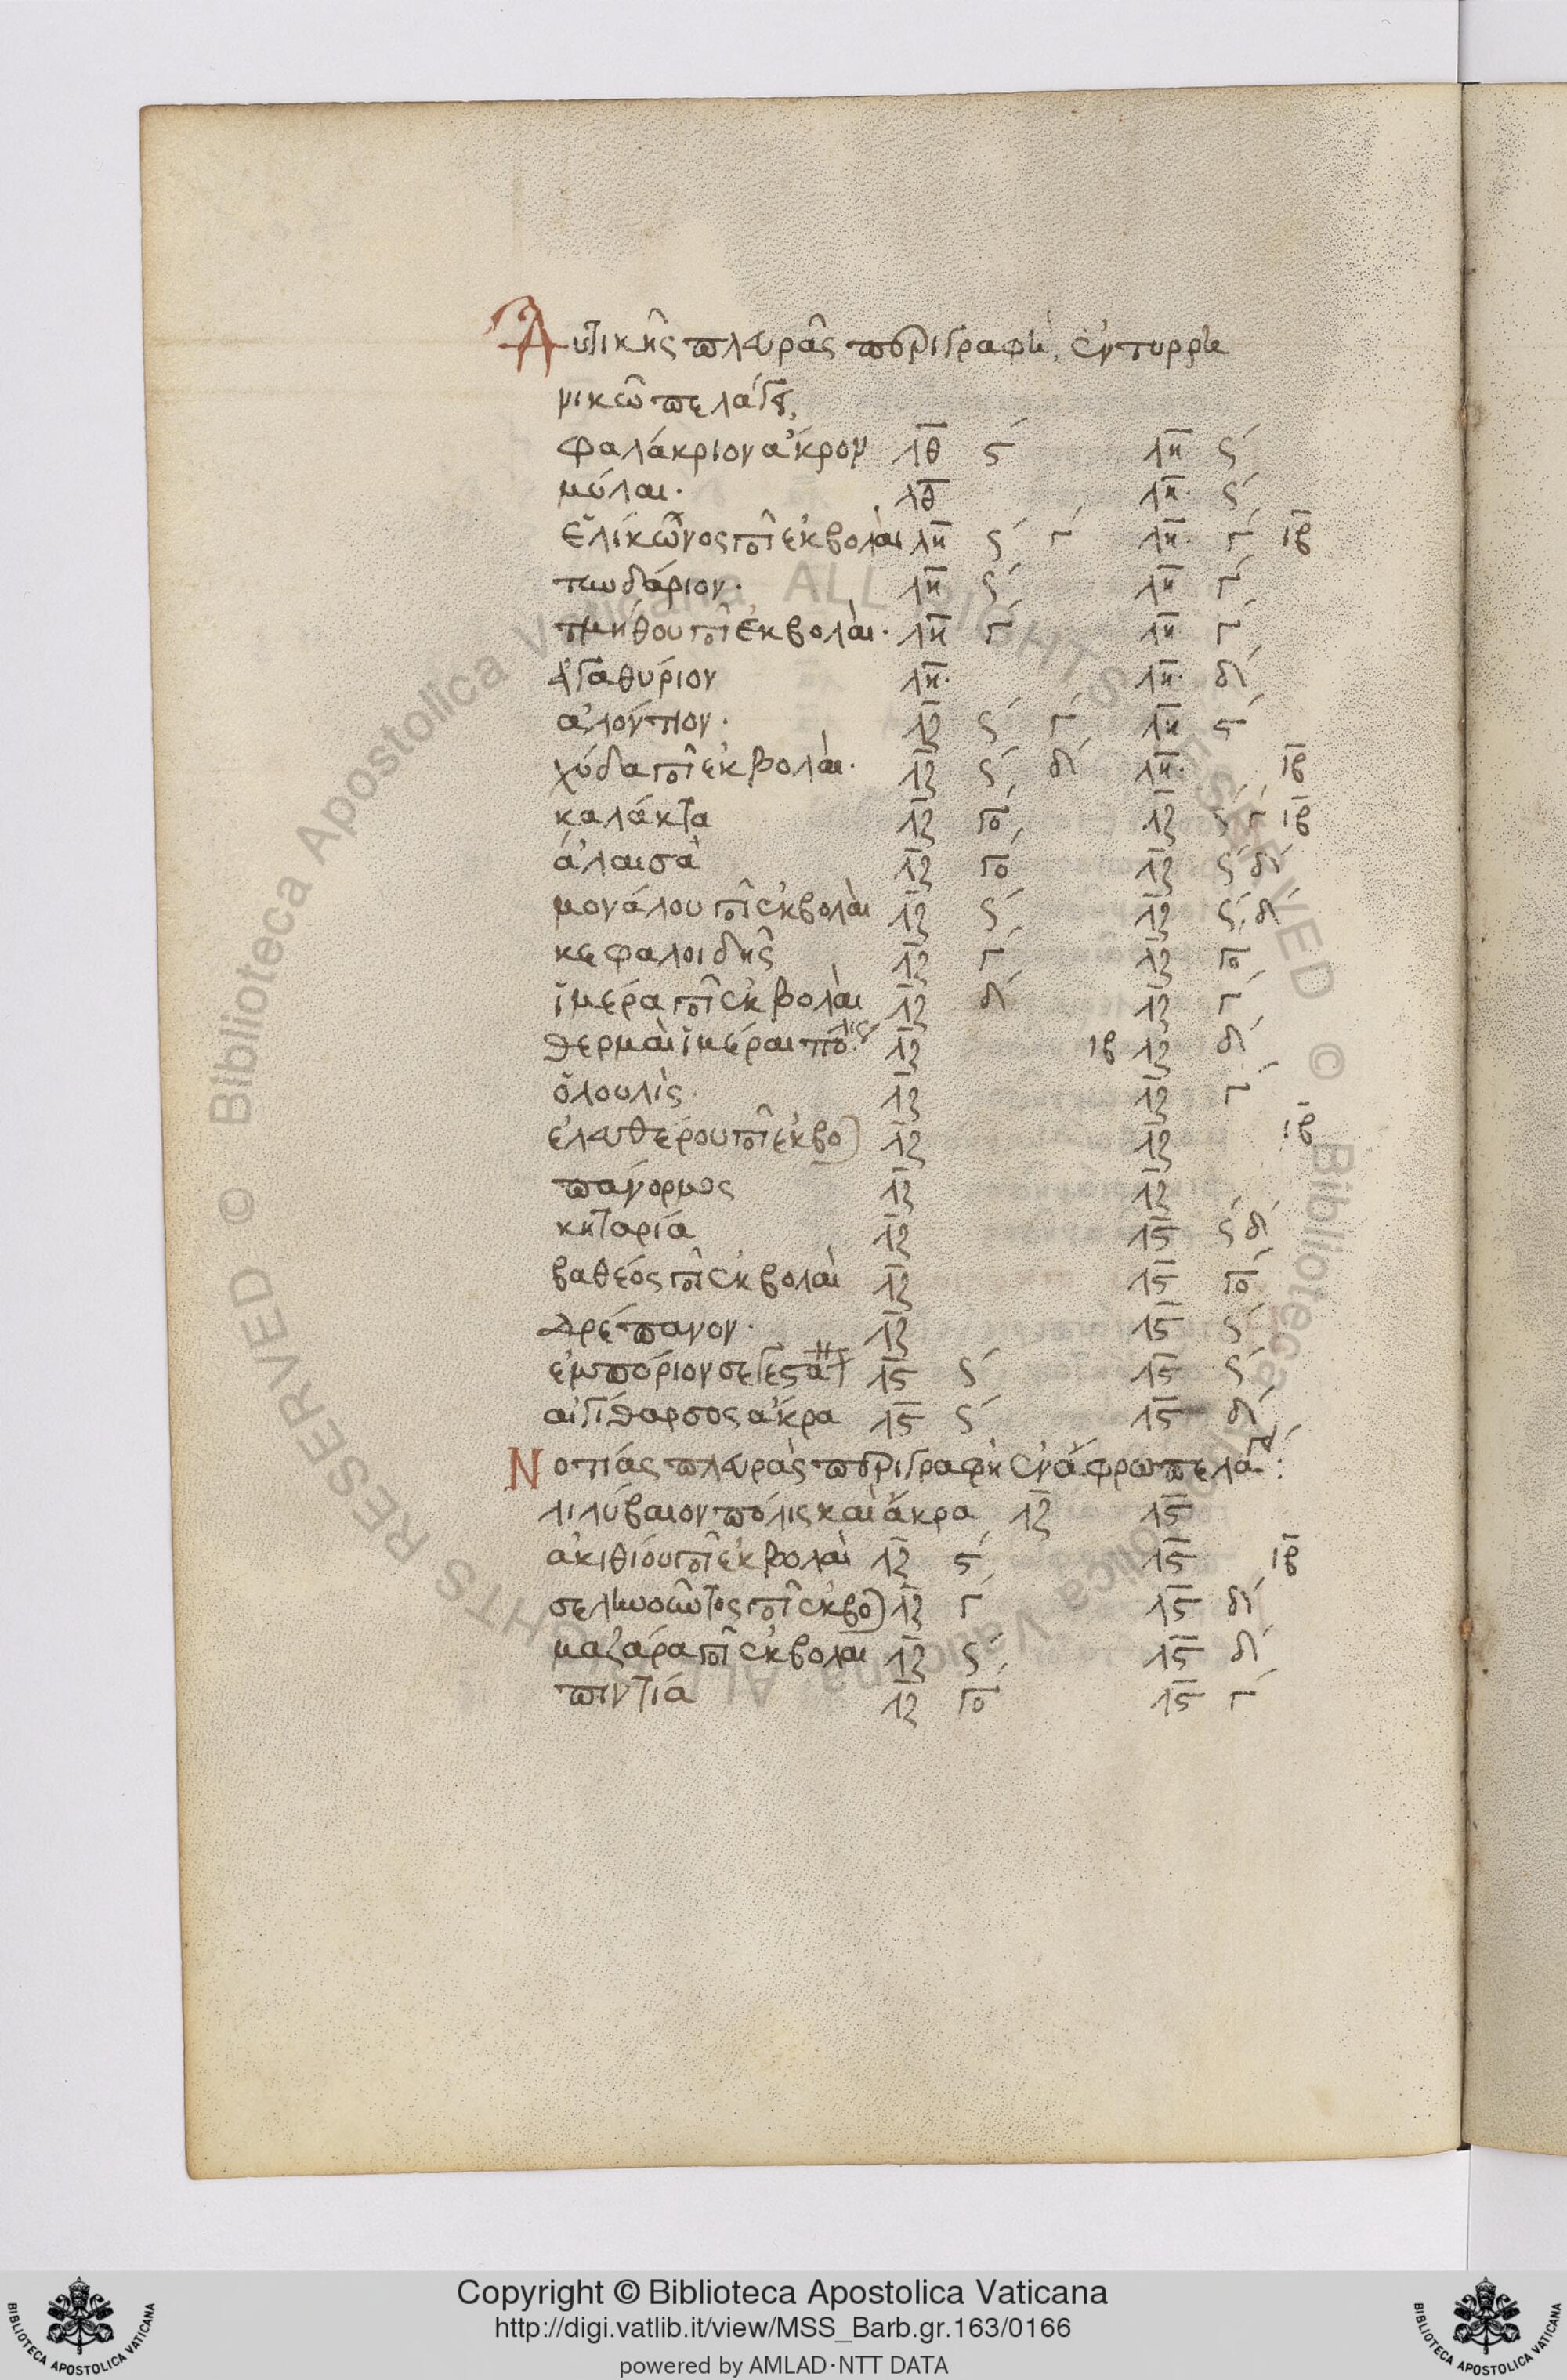 Αυτικῆς πλευρᾶς περιγραφὴ, ἐν τυρρη
νικῶ πελάγει,
φαλάκριον ἄκρον λθ ϛ λη ϛ
μύλαι· λθ λη· ϛ
ἑλικῶνος ποτ ἐκβολαὶ λη ϛ γ λη· γ ιβ
τινδάριον· λη ϛ λη γ
τμήθου ποτ ἐκβολαὶ· λη γ λη γ
ἀγαθύριον λη· λη· δ
ἀλόντιον· λζ ϛ γ λη ϛ
χύδα ποτ ἐκβολαὶ· λζ ϛ δ λη· ιβ
καλάκτα λζ γο λζ ϛ γ ιβ
ἀλαισὰ λζ γο λζ ϛ δ
μονάλου ποτ ἐκβολαὶ λζ ϛ λζ ϛ δ
κεφαλοιδὴς λζ γ λζ γο
ἱμέρα ποτ ἐκβολαὶ λζ δ λζ γ
θερμαὶ ἱμέραι πόλις λζ ιβ λζ δ
ὀλουλὶς· λζ λζ γ
ἐλευθέρου ποτ ἐκβο) λζ λζ ιβ
πάνορμος λζ λζ
κηταρία λζ λϛ ϛ δ
βαθέος ποτ ἐκβολαὶ λζ λϛ γο
δρέπανον· λζ λϛ ϛ
ἐμπόριον σεγεστ λϛ ϛ λϛ ϛ
αἰγίθαρσος ἄκρα λϛ ϛ λϛ δ
Νοτιάς πλευρὰς περιγραφὴ ἐν ἄφρω πελαγ:
λιλύβαιον πόλις καὶ ἄκρα λζ λϛ
ἀκιθίου ποτ ἐκβολαὶ λζ ϛ λϛ ιβ
σελινοῶντος ποτ ἐκβο) λζ γ λϛ δ
μαζάρα ποτ ἐκβολαι λζ ϛ λϛ δ
πιντιά λζ γο λϛ γ
Biblioteca Apostolica Vaticana ALL RIGHTS RESERVED ©
Copyright © Biblioteca Apostolica Vaticana
http://digi.vatlib.it/view/MSS_Barb.gr.163/0166
powered by AMLAD·NTT DATA
BIBLIOTECA APOSTOLICA VATICANA
BIBLIOTECA APOSTOLICA VATICANA